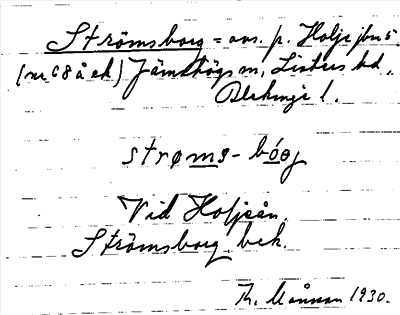 Strömsborg = avs. p. Holje jbn 5
(nr 68 å ek) Jämshögs sn, Listers hd,
Blekinge l.
strøms-bóœg
Vid Holjeån.
Strömsborg bek.
Th. Månsson 1930.